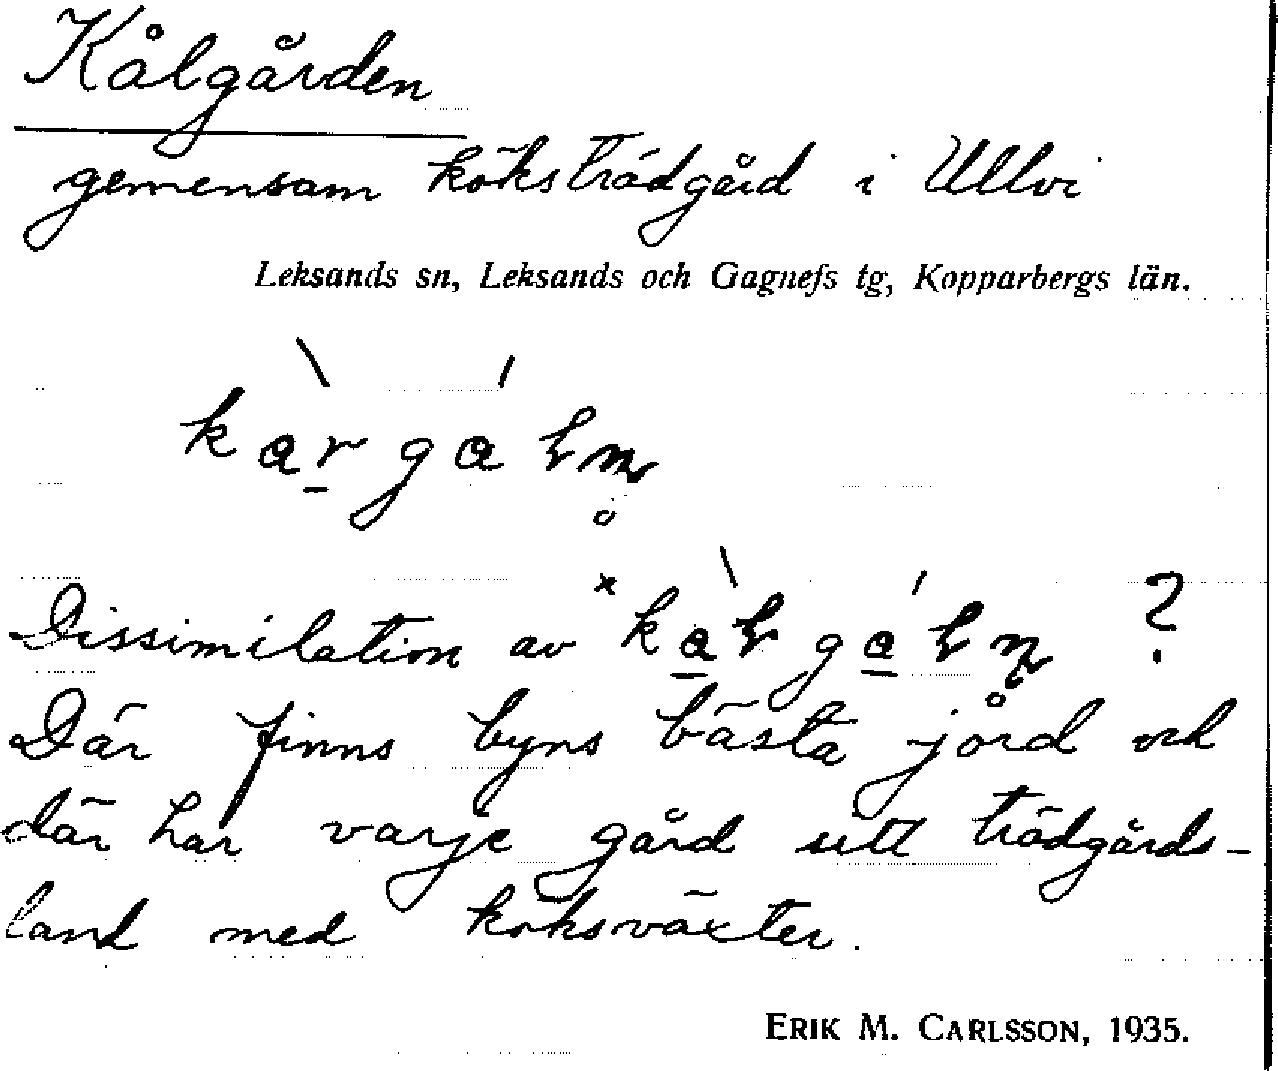 Kålgården
gemensam köksträdgård i Ullvi
Leksands sn, Leksands och Gagnefs tg, Kopparbergs län.
Dissimilation av ?
Där finns byns bästa jord och
där har varje gård sitt trädgårds-
land med köksväxter.
ERIK M. CARLSSON, 1935.